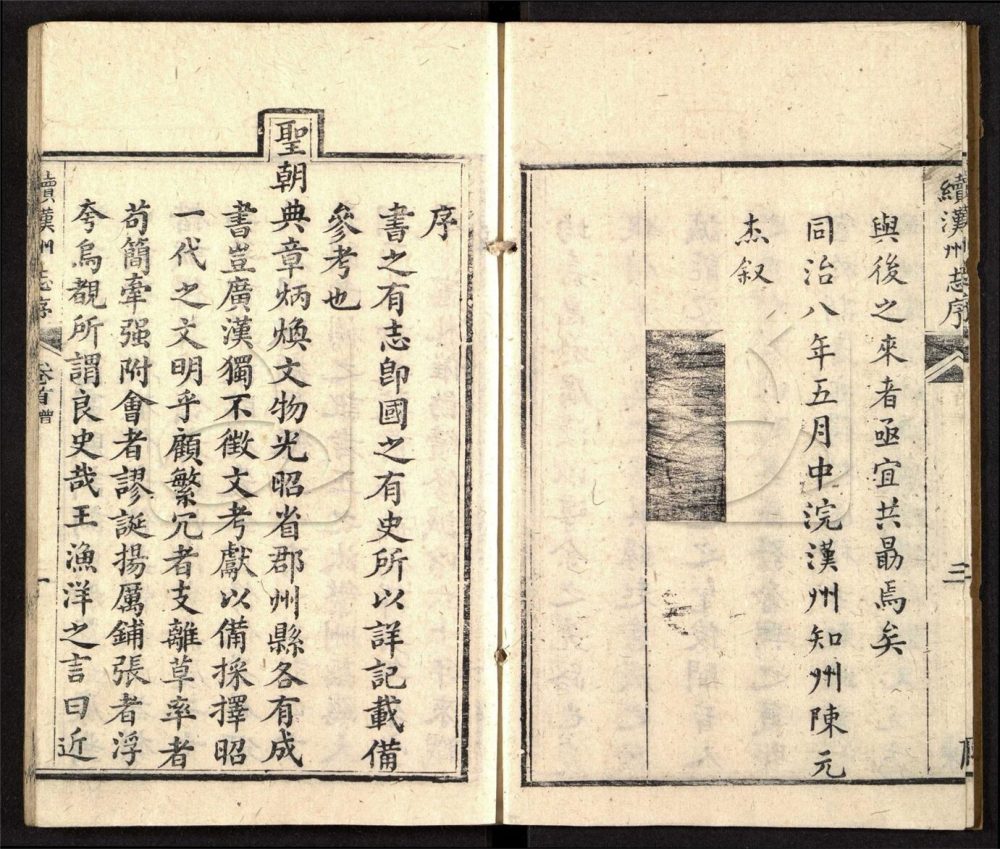 續漢州志序
三
與後之來者亟宜共勗焉矣
同治八年五月中浣漢州知州陳元
杰叙
序
書之有志卽國之有史所以詳記載備
參考也
聖朝典章炳煥文物光昭省郡州縣各有成
書豈廣漢獨不徵文考獻以備採擇昭
一代之文明乎顧繁冗者支離草率者
苟簡牽强附會者謬誕揚厲鋪張者浮
夸烏覩所謂良史哉王漁洋之言曰近
續漢州志序
卷首
一